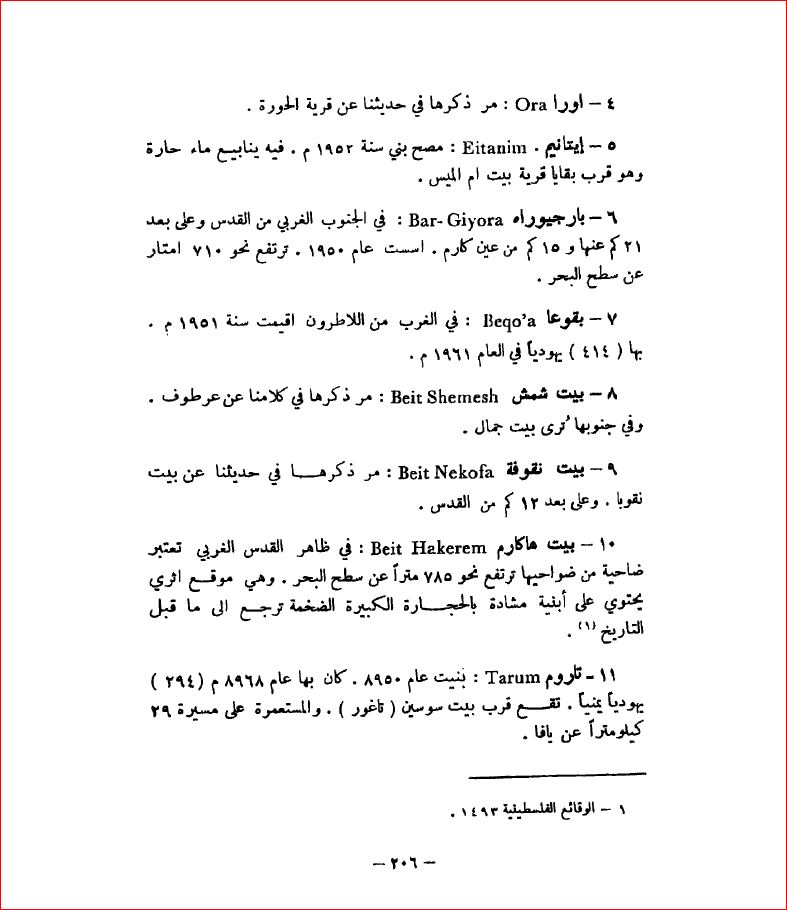 ٤ – اورا Ora : مر ذكرها في حديثنا عن قرية الجورة .
٥ – إيتانيم . Eitanim : مصح بني سنة ١٩٥٢ م . فيه ينابيع ماء حارة
وهو قرب بقايا قرية بيت ام الميس .
٦ – بارجيوراه Bar- Giyora : في الجنوب الغربي من القدس وعلى بعد
٢١ كم عنها و ١٥ كم من عين كارم . اسست عام ١٩٥٠ . ترتفع نحو ٧١٠ امتار
عن سطح البحر .
٧ – بقوعا Beqo'a : في الغرب من اللاطرون اقيمت سنة ١٩٥١ م .
بها ( ٤١٤ ) يهودياً في العام ١٩٦١ م .
٨ – بيت شمش Beit Shemesh : مر ذكرها في كلامنا عن عرطوف .
وفي جنوبها تُرى بيت جمال .
٩ – بيت نقوفة Beit Nekofa : مر ذكرهـا في حديثنا عن بيت
نقوبا . وعلى بعد ١٢ كم من القدس .
١٠ – بيت هاكارم Beit Hakerem : في ظاهر القدس الغربي تعتبر
ضاحية من ضواحيها ترتفع نحو ٧٨٥ متراً عن سطح البحر . وهي موقع اثري
يحتوي على أبنية مشادة بالحجـارة الكبيرة الضخمة ترجع الى ما قبل
التاريخ (١) .
١١ - تاروم Tarum : بُنيت عام ٨٩٥٠ . كان بها عام ٨٩٦٨ م (٢٩٤ )
يهودياً يمنياً . تقـع قرب بيت سوسين ( تاغور ) . والمستعمرة على مسيرة ٢٩
كيلومتراً عن يافا .
١ – الوقائع الفلسطينية ١٤٩٣ .
– ٢٠٦ –